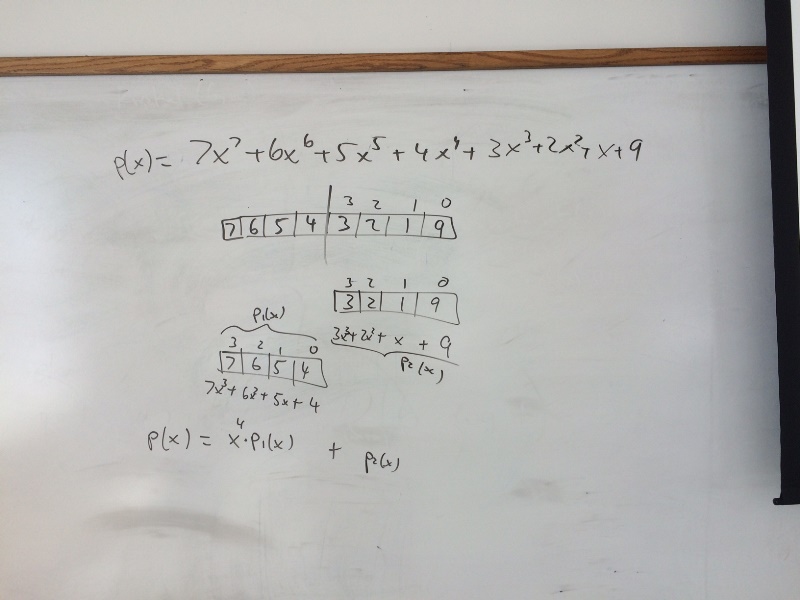 p(x) = 7x⁷ + 6x⁶ + 5x⁵ + 4x⁴ + 3x³ + 2x² + x + 9
3 2 1 0
7 6 5 4 3 2 1 9
3 2 1 0
3 2 1 9
3x³ + 2x² + x + 9
p₂(x)
p₁(x)
3 2 1 0
7 6 5 4
7x³ + 6x² + 5x + 4
p(x) = x⁴·p₁(x) + p₂(x)